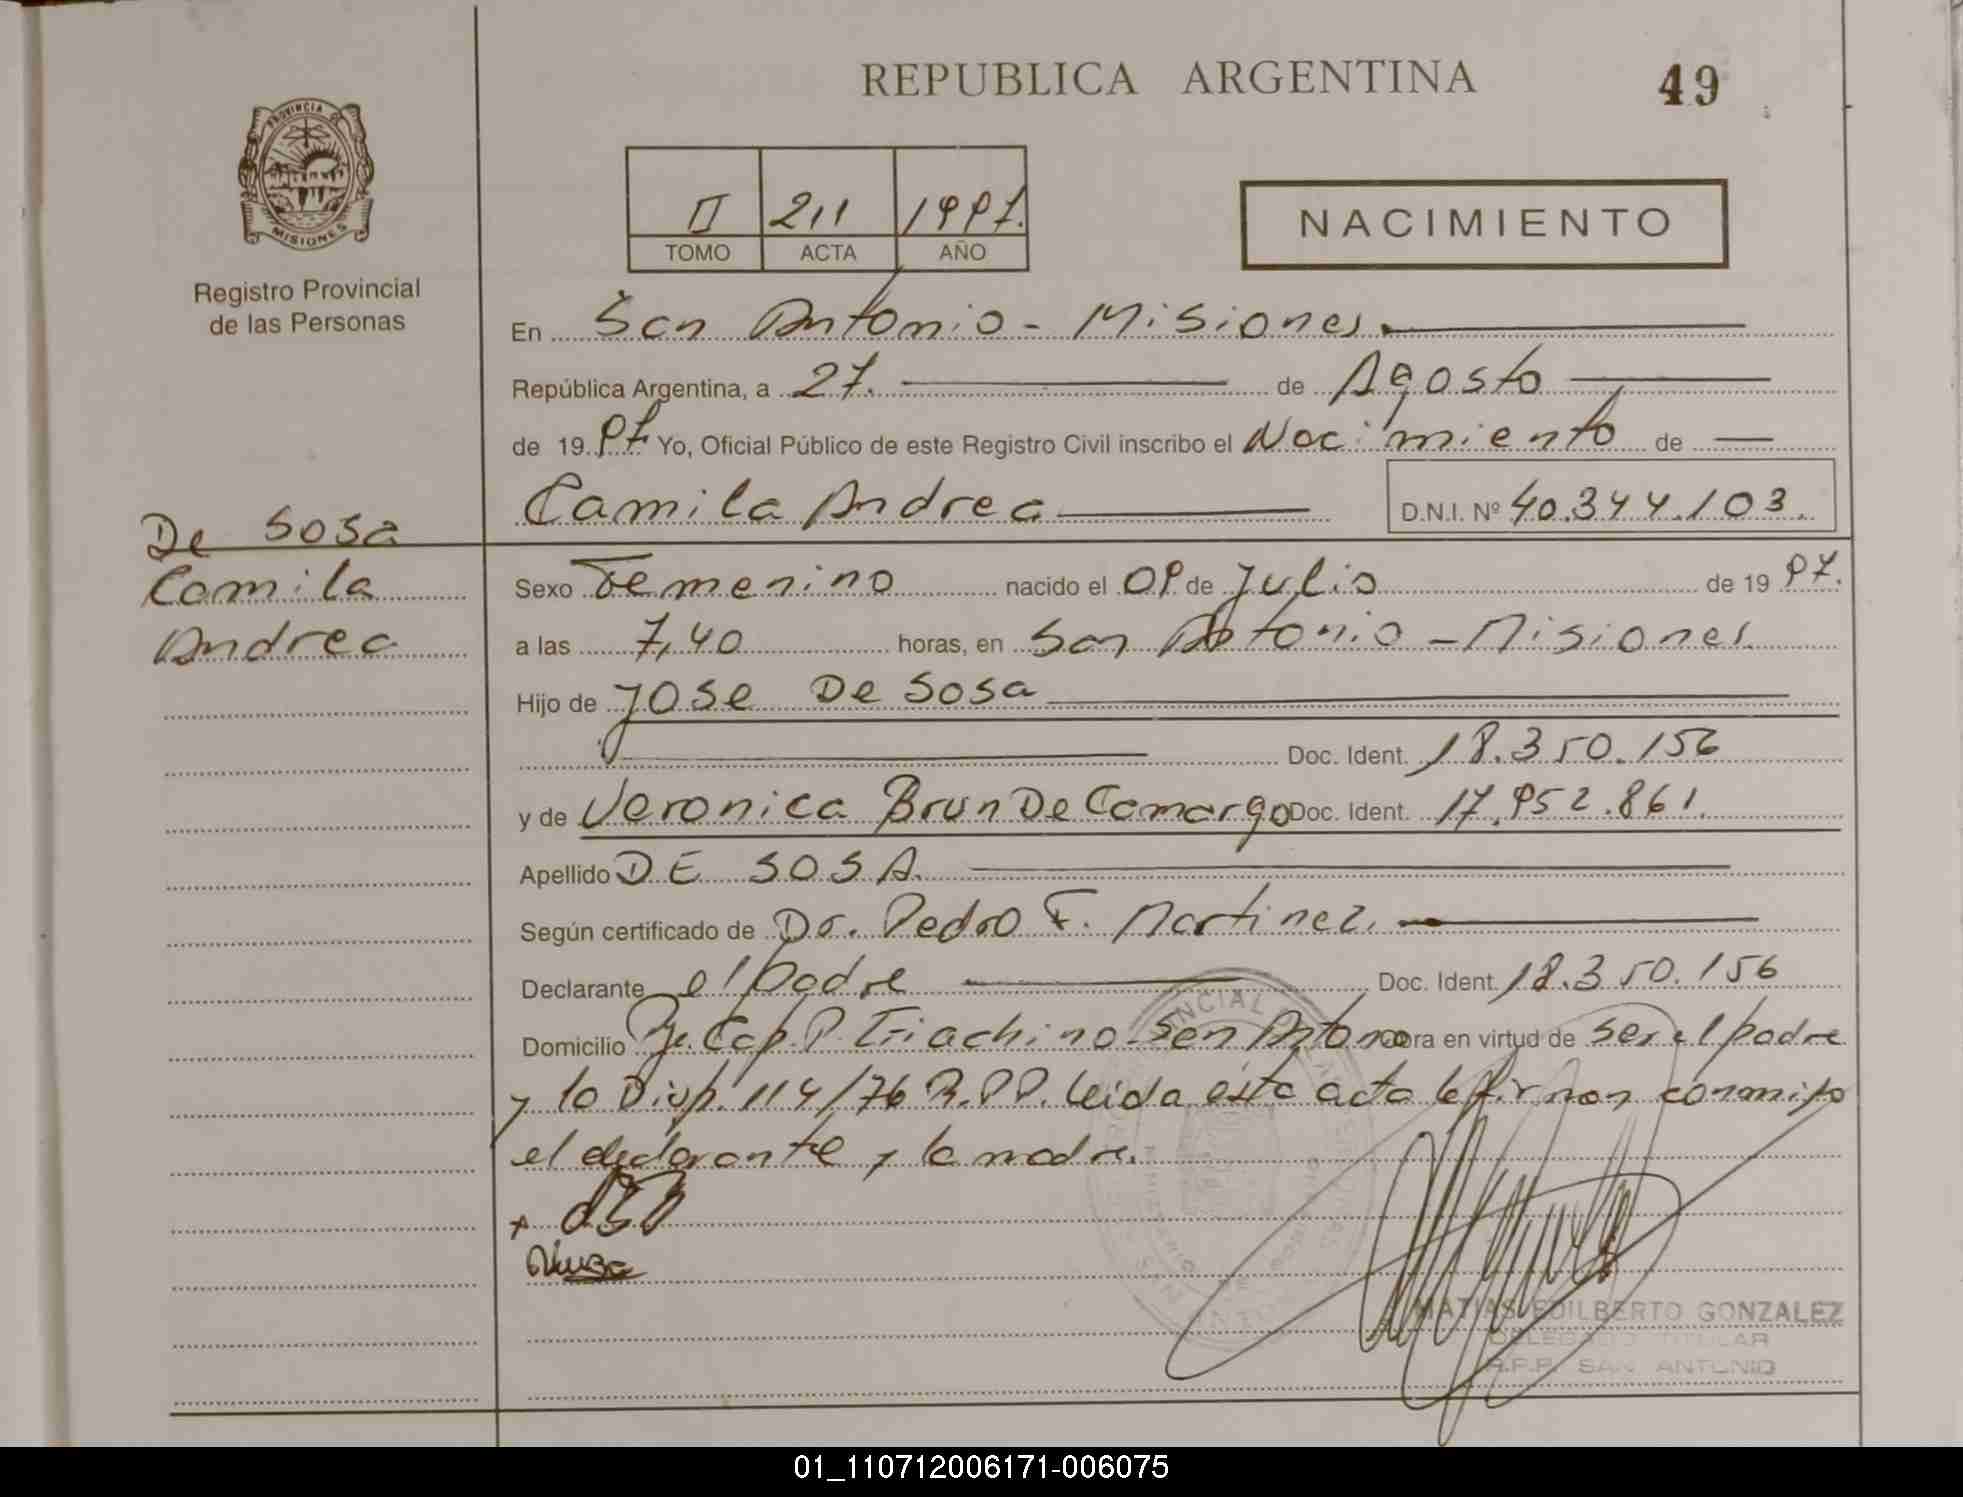 REPUBLICA ARGENTINA
49
PROVINCIA DE
MISIONES
Registro Provincial
de las Personas
II 211 1997.
TOMO ACTA AÑO
NACIMIENTO
En San Antonio - Misiones.
República Argentina, a 27. de Agosto
de 1997 Yo, Oficial Público de este Registro Civil inscribo el Nacimiento de
Camila Andrea
D.N.I. Nº 40.344.103.
De Sosa
Camila
Andrea
Sexo Femenino nacido el 09 de Julio de 1997.
a las 7,40 horas, en San Antonio - Misiones.
Hijo de Jose De Sosa
Doc. Ident. 18.350.156
y de Veronica Brun De Camargo Doc. Ident. 17.952.861.
Apellido DE SOSA.
Según certificado de Dr. Pedro F. Martinez.
Declarante el padre Doc. Ident. 18.350.156
Domicilio Pje. Cap. P. San Antonio obra en virtud de ser el padre
y la Disp. 114/76 R.P.P. leida esta acta la firman conmigo
el declarante y la madre.
MATIAS EDILBERTO GONZALEZ
DELEGADO TITULAR
R.P.P. SAN ANTONIO
01_110712006171-006075